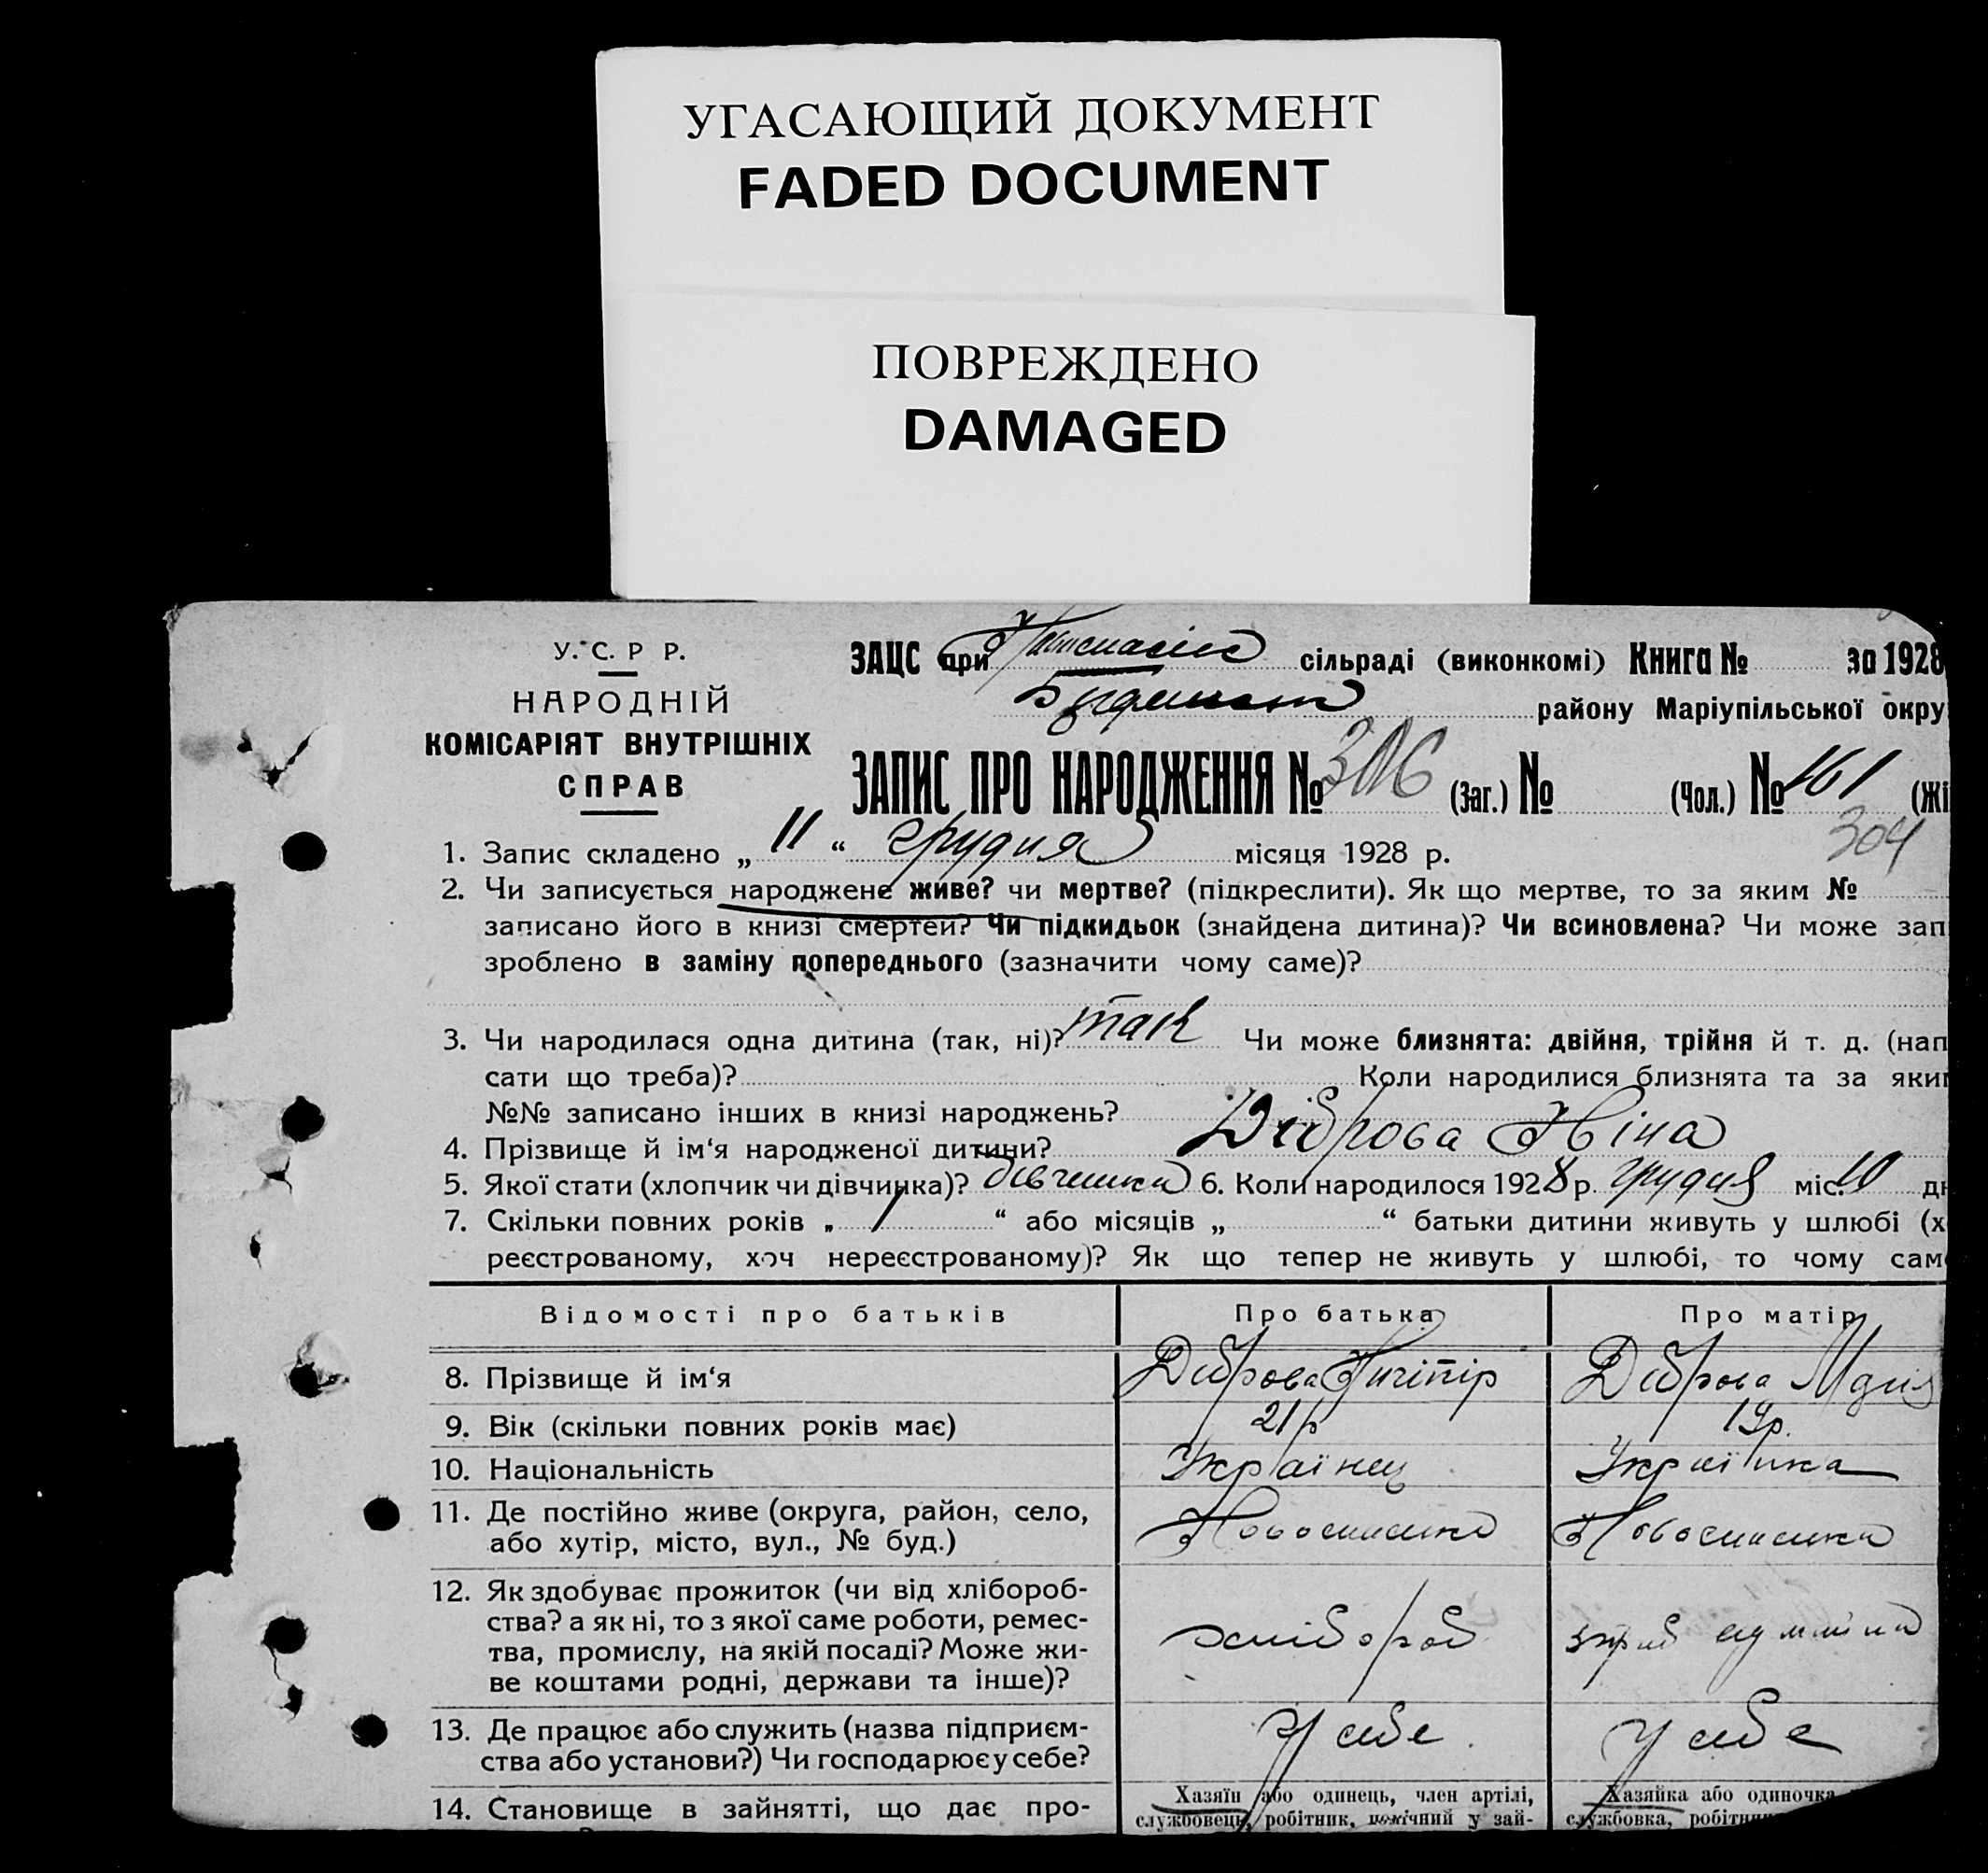 УГАСАЮЩИЙ ДОКУМЕНТ
FADED DOCUMENT
ПОВРЕЖДЕНО
DAMAGED
У. С. Р Р.
НАРОДНІЙ
КОМІСАРІЯТ ВНУТРІШНІХ
СПРАВ
ЗАЦС при сільраді (виконкомі) Книга № за 1928
району Маріупільської окру
ЗАПИС ПРО НАРОДЖЕННЯ № 306 (Заг.) № (Чол.) № 161 (Жі
304
1. Запис складено „ 11 “ грудня місяця 1928 р.
2. Чи записується народжене живе? чи мертве? (підкреслити). Як що мертве, то за яким №
записано його в книзі смертей? Чи підкидьок (знайдена дитина)? Чи всиновлена? Чи може зап
зроблено в заміну попереднього (зазначити чому саме)?
3. Чи народилася одна дитина (так, ні)? так Чи може близнята: двійня, трійня й т. д. (нап
сати що треба)? Коли народилися близнята та за яки
№№ записано інших в книзі народжень?
4. Прізвище й ім‘я народженої дитини? Діброва Ніна
5. Якої стати (хлопчик чи дівчинка)? дівчинка 6. Коли народилось 1928 р. грудня міс. 10 дн
7. Скільки повних років „ 1 “ або місяців „ “ батьки дитини живуть у шлюбі (х
реєстрованому, хоч нереєстрованому)? Як що тепер не живуть у шлюбі, то чому сам
Відомості про батьків Про батька Про матір
8. Прізвище й ім‘я Діброва Ничіпір Діброва
9. Вік (скільки повних років має) 21 р 19 р.
10. Національність Українец Українка
11. Де постійно живе (округа, район, село,
або хутір, місто, вул., № буд.) Новоспаська Новоспаська
12. Як здобуває прожиток (чи від хлібороб-
ства? а як ні, то з якої саме роботи, ремес-
тва, промислу, на якій посаді? Може жи-
ве коштами родні, держави та інше)? хлібороб
13. Де працює або служить (назва підприєм-
ства або установи?) Чи господарює у себе? У себе У себе
14. Становище в зайнятті, що дає про-
Хазяїн або одинець, член артілі,
службовець, робітник, помічний у зай-
Хазяйка або одиночка
службовка, робітн